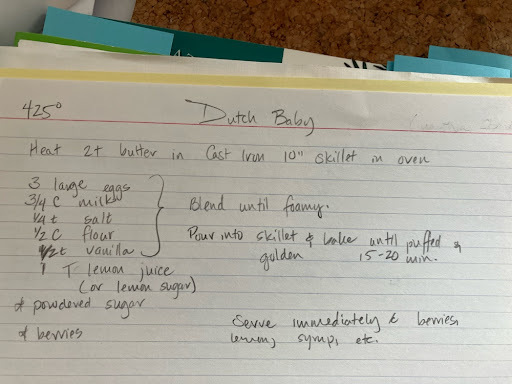 425°
Dutch Baby
Heat 2t butter in Cast Iron 10" skillet in oven
3 large eggs
3/4 C milk
1/4 t salt
1/2 C flour
1/2 t vanilla
Blend until foamy.
Pour into skillet & bake until puffed &
golden 15-20 min.
1 T lemon juice
(or lemon sugar)
* powdered sugar
* berries
Serve immediately & berries,
lemon, syrup, etc.